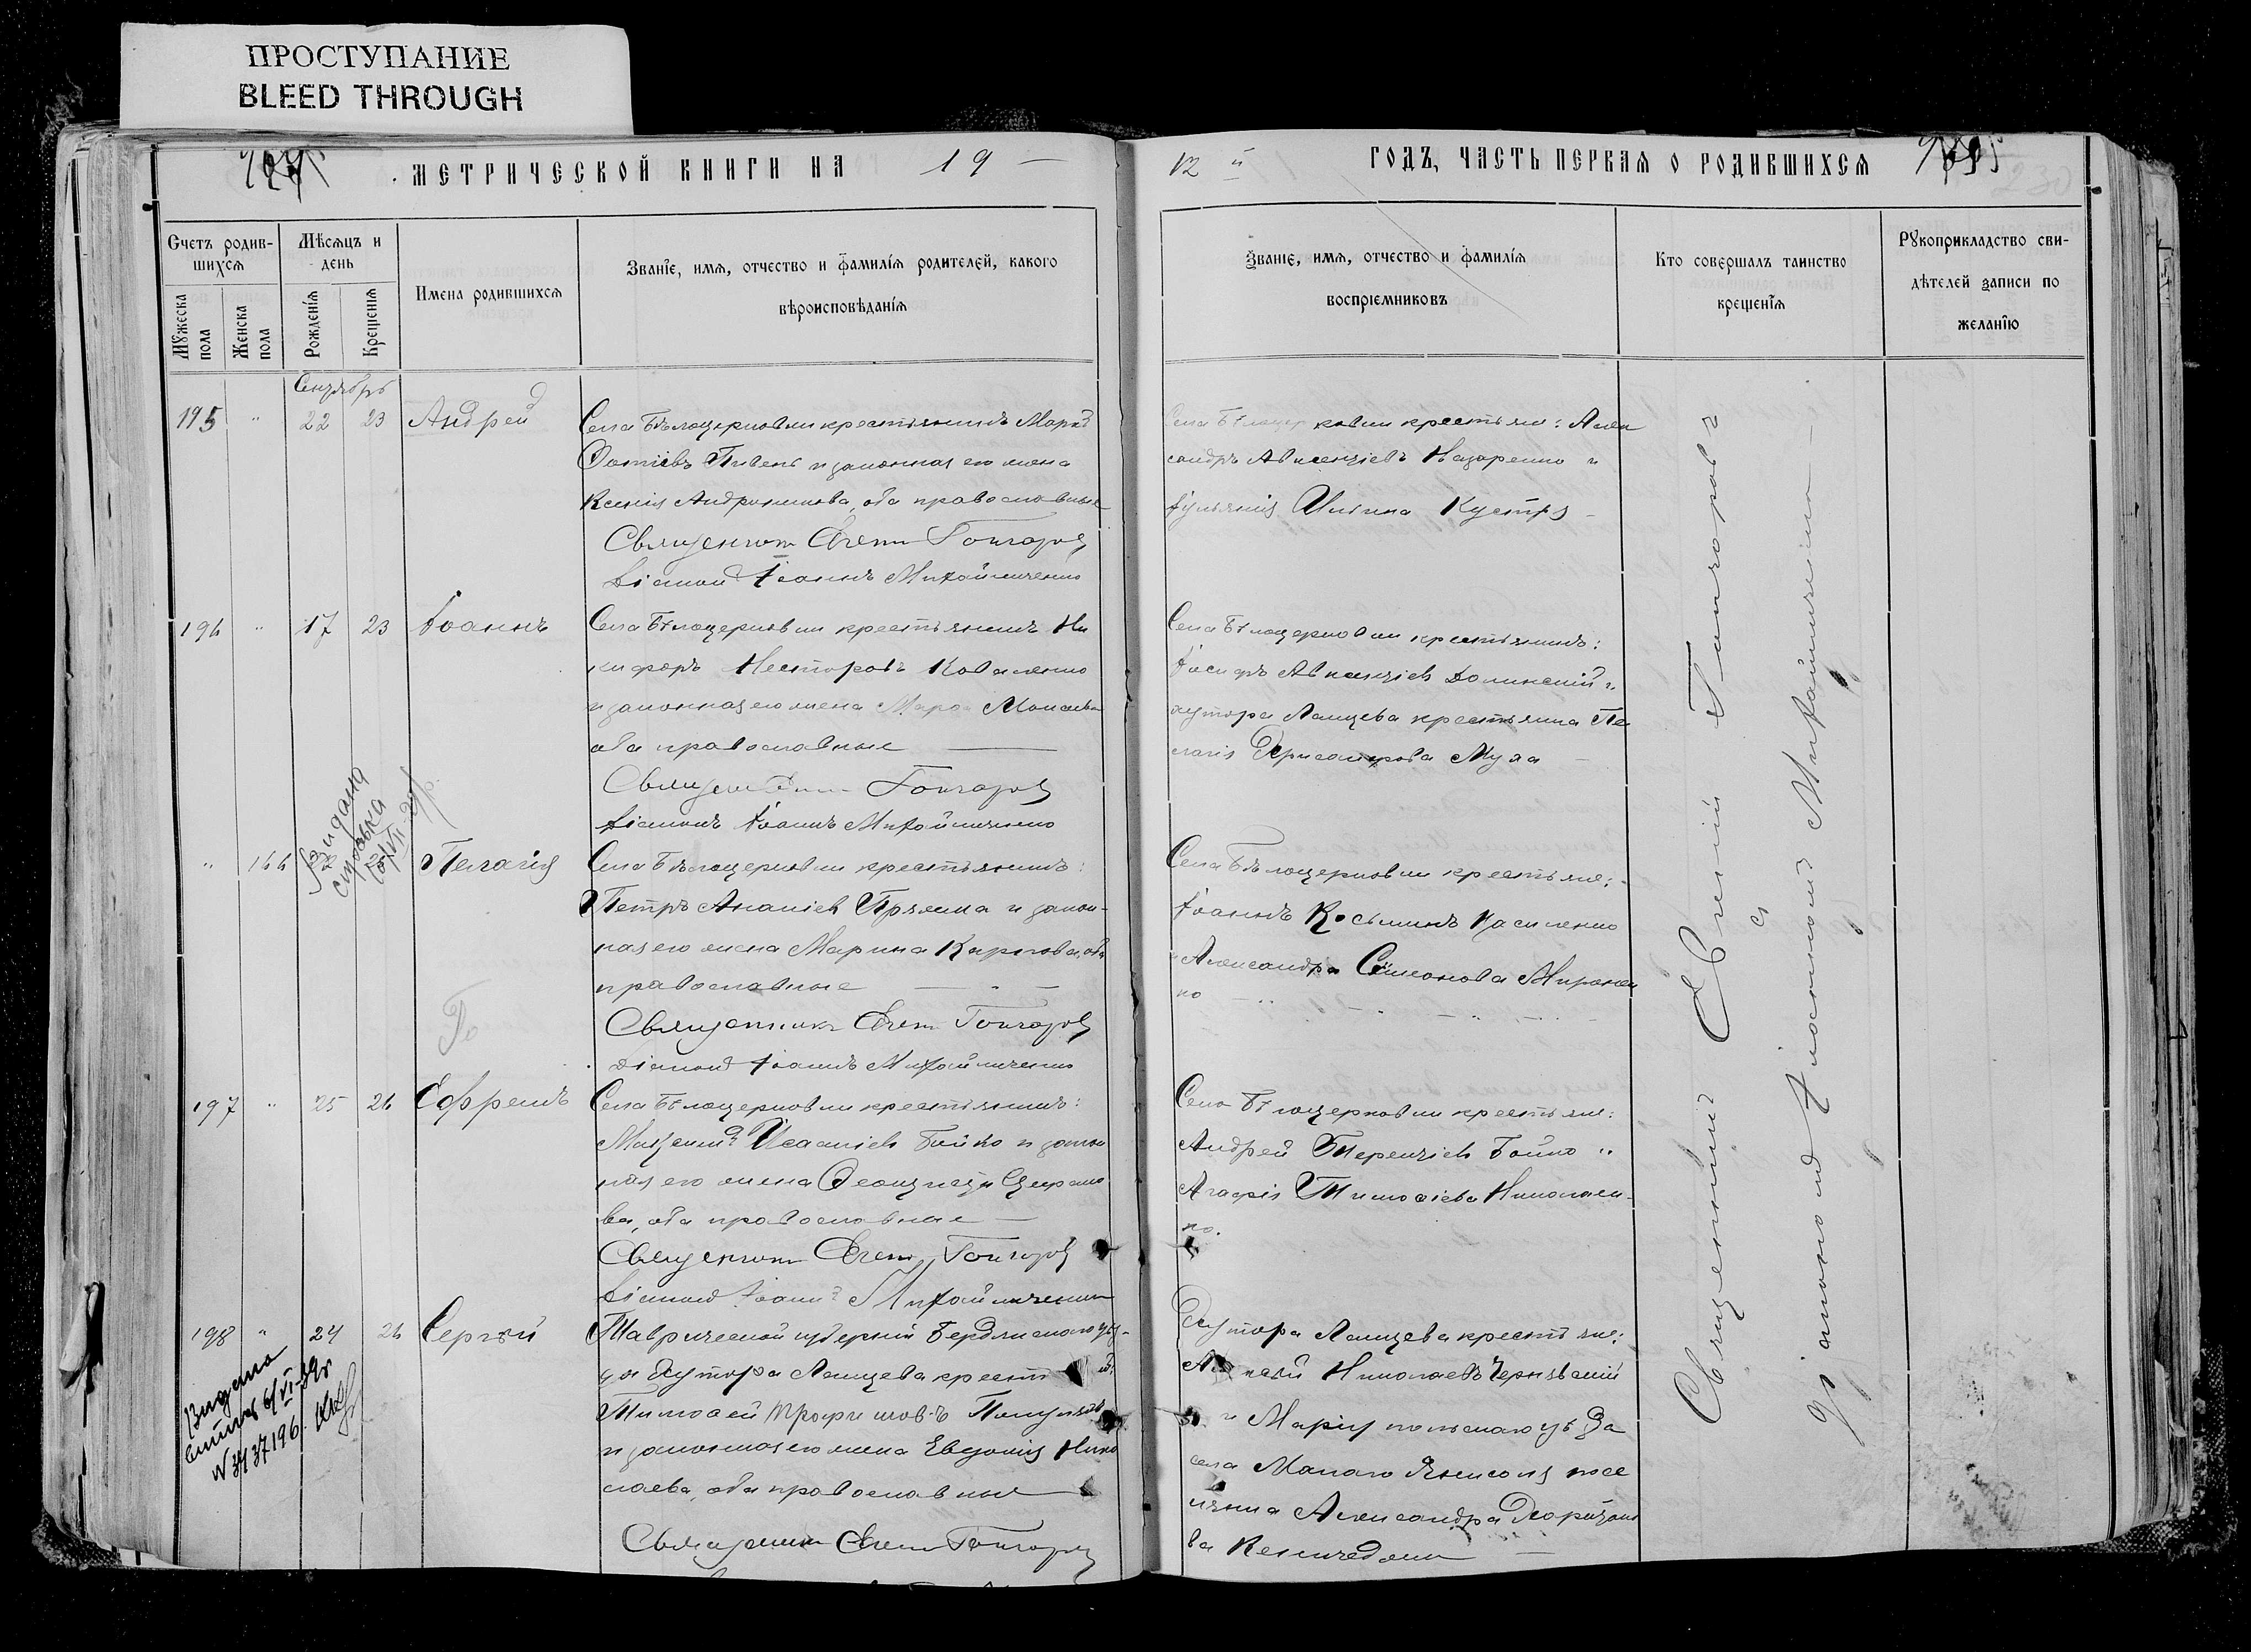 ПРОСТУПАНИЕ
BLEED THROUGH
МЕТРИЧЕСКОЙ КНИГИ НА 19
12 й ГОДЪ, ЧАСТЬ ПЕРВАЯ О РОДИВШИХСЯ
230
Счетъ родив-
шихся
Мужеска пола
Женска пола
Мѣсяцъ и день
Рожденія
Крещенія
Имена родившихся
Званіе, имя, отчество и фамилія родителей, какого
вѣроисповѣданія
Званіе, имя, отчество и фамилія
воспріемниковъ
Кто совершалъ таинство
крещенія
Рукоприкладство сви-
дѣтелей записи по
желанію
Сентябрь
195 " 22 23 Андрей
Села Бѣлоцерковки крестьянинъ Маркъ
Фотіевъ Пивень и законная его жена
Ксенія Андроникова, оба православные
Священникъ Евгеній Гончаровъ
Діаконъ Іоаннъ Михайличенко
Села Бѣлоцерковки крестьяне: Алек
сандръ Авксентіевъ Назаренко и
Іуліанія Ильина Кустря
196 " 17 23 Іоаннъ
Села Бѣлоцерковки крестьянинъ Ни
кифоръ Несторовъ Коваленко
и законная его жена
оба православные
Гончаровъ
Діаконъ Іоаннъ Михайличенко
Села Бѣлоцерковки крестьянинъ:
Іосифъ Авксентіевъ Долинскій и
хутора Ланцева крестьянка Пе
лагія Хрисанфова Муха
Видана
" 166
Пелагія
Села Бѣлоцерковки крестьянинъ:
Петръ Ананіевъ Пряжка и закон-
ная его жена Марина Карпова, оба
православные
Священникъ Евгеній Гончаровъ
Діаконъ Іоаннъ Михайличенко
Села Бѣлоцерковки крестьяне:
Іоаннъ Косьминъ Василенко
и Александра Симонова Миронен
ко
197 " 25 26 Ефремъ
Села Бѣлоцерковки крестьянинъ:
Исааніевъ Бойко и закон
ная его жена
ва, оба православные
Священникъ Евгеній Гончаровъ
Діаконъ Іоаннъ Михайличенко
Села Бѣлоцерковки крестьяне:
Андрей Терентіевъ Бойко и
Агафія Тимофіева Николаен-
ко.
198 " 24 26 Сергѣй
Таврической губерніи Бердянскаго уѣз-
да хутора Ланцева крест
Тимофей Трофимовъ
и законная его жена Евдокія Нико
лаева, оба православные
Священникъ Евгеній Гончаровъ
Хутора Ланцева крестьяне:
Николаевъ Чернявскій
и Маріупольскаго уѣзда
села Малаго Янисоля посе
лянка Александра Харитоно
ва
Видана
Священникъ Евгеній Гончаровъ
съ
Діакономъ Іоанномъ Михайличенко